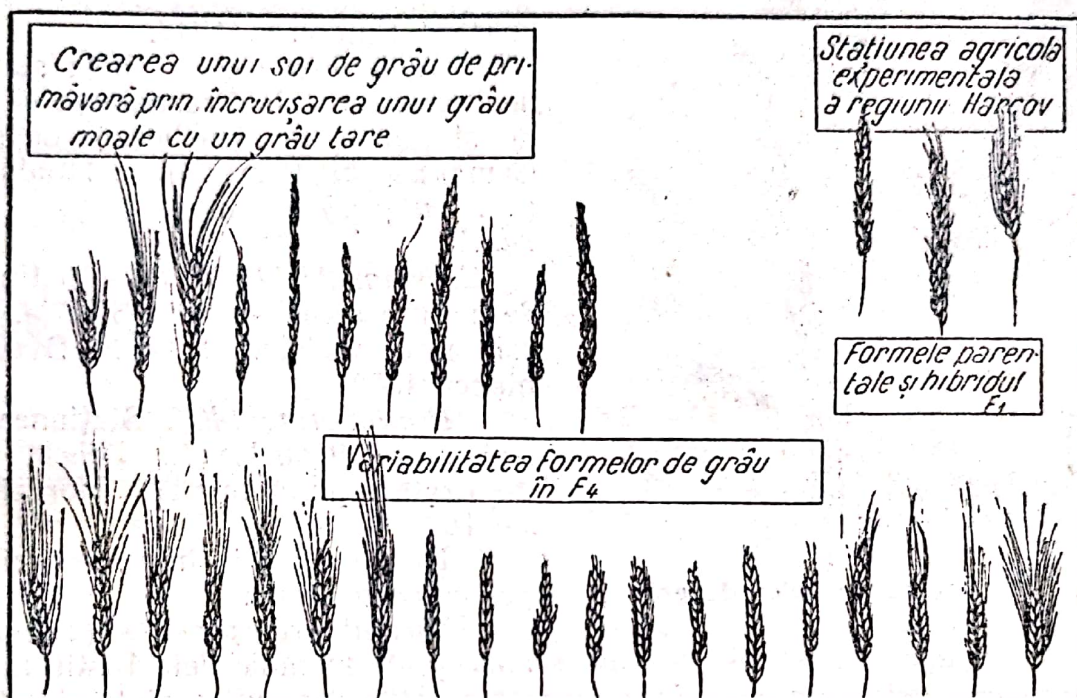 Crearea unui soi de grâu de pri-
măvară prin încrucișarea unui grâu
moale cu un grâu tare
Stațiunea agricola
experimentala
a regiunii Harcov
Formele paren-
tale și hibridul
F1
Variabilitatea formelor de grâu
în F4